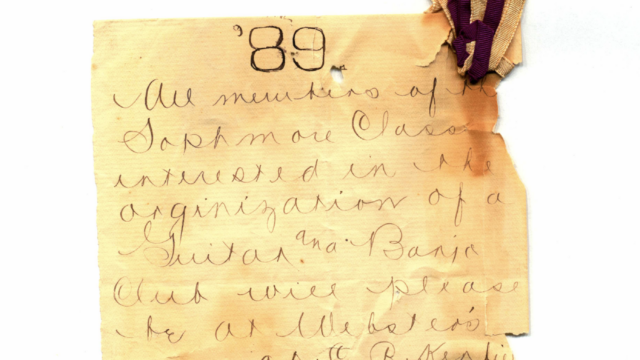 '89.
All members of th
Sophmore Class
interested in the
orginization of a
Guitar and Banjo
Club will please
be at Webster's
at